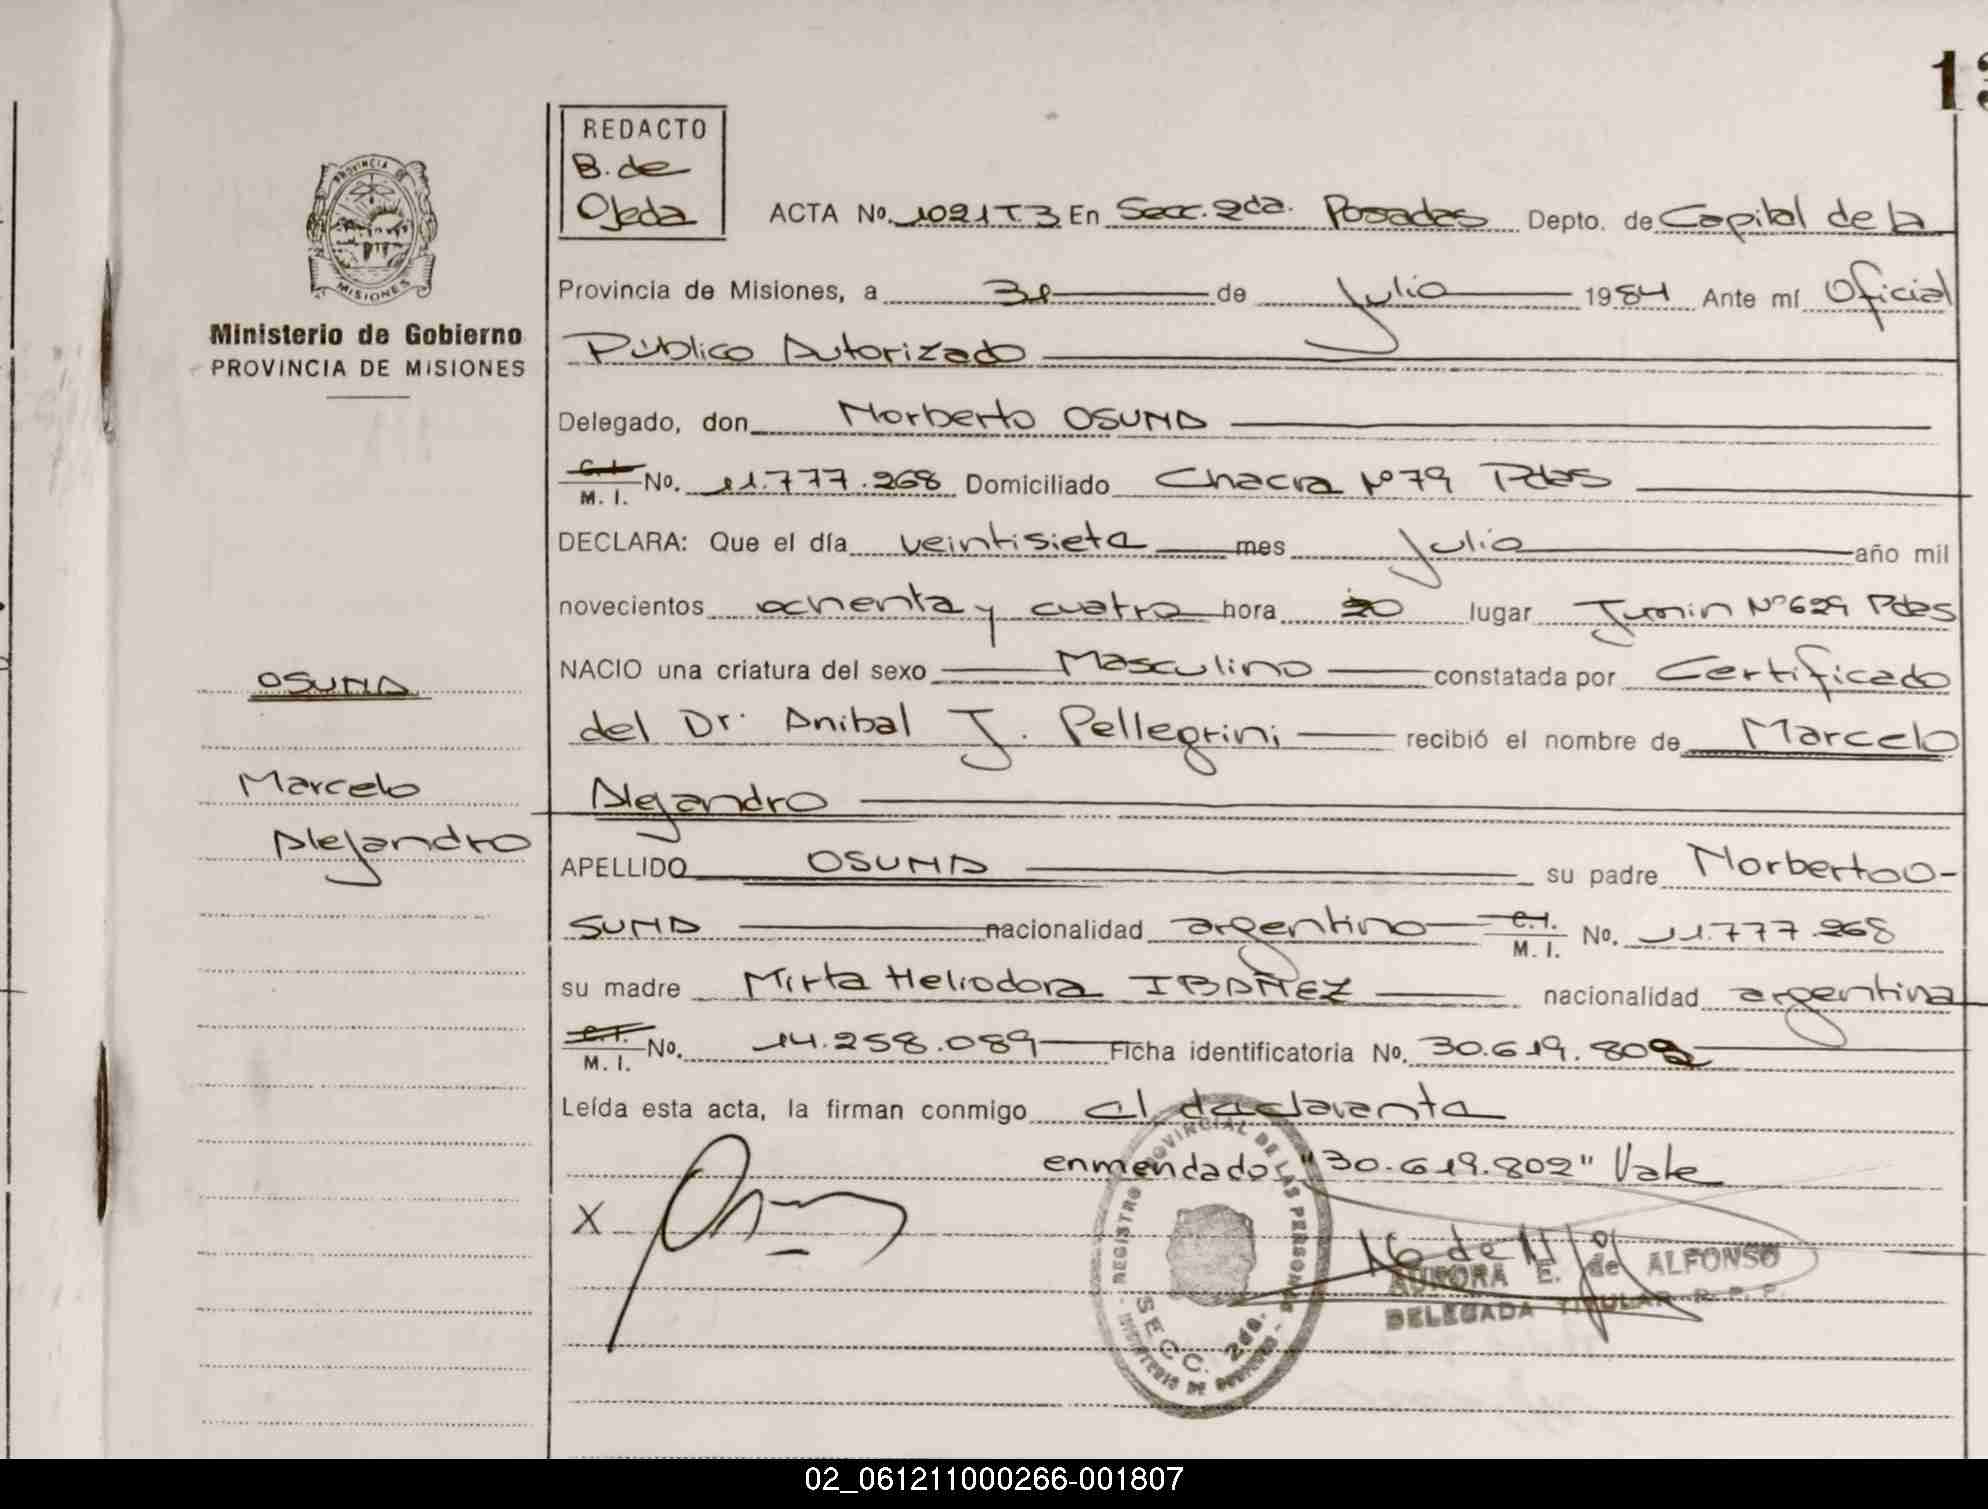 13
REDACTO
B. de
Ojeda
PROVINCIA DE
MISIONES
Ministerio de Gobierno
PROVINCIA DE MISIONES
ACTA No. 1021 T3 En Secc. 2da. Posadas Depto. de Capital de la
Provincia de Misiones, a 31 de Julio 1984 Ante mí Oficial
Público Autorizado
Delegado, don Norberto OSUNA
C. I.
M. I. No. 11.777.268 Domiciliado Chacra Nº 79 Pdas
DECLARA: Que el día veintisiete mes Julio año mil
novecientos ochenta y cuatro hora 20 lugar Junin Nº 629 Pdas
NACIO una criatura del sexo Masculino constatada por Certificado
del Dr. Anibal J. Pellegrini recibió el nombre de Marcelo
Alejandro
APELLIDO OSUNA su padre Norberto O-
SUNA nacionalidad argentino C.I.
M. I. No. 11.777.268
su madre Mirta Heliodora IBAÑEZ nacionalidad argentina
C.I.
M. I. No. 14.258.089 Ficha identificatoria No. 30.619.802
Leída esta acta, la firman conmigo el declarante
enmendado "30.619.802" Vale
X
OSUNA
Marcelo
Alejandro
REGISTRO PROVINCIAL DE LAS PERSONAS
SECC. 2da.
MINISTERIO DE GOBIERNO
AURORA E. de ALFONSO
DELEGADA TITULAR R. P. P.
02_061211000266-001807